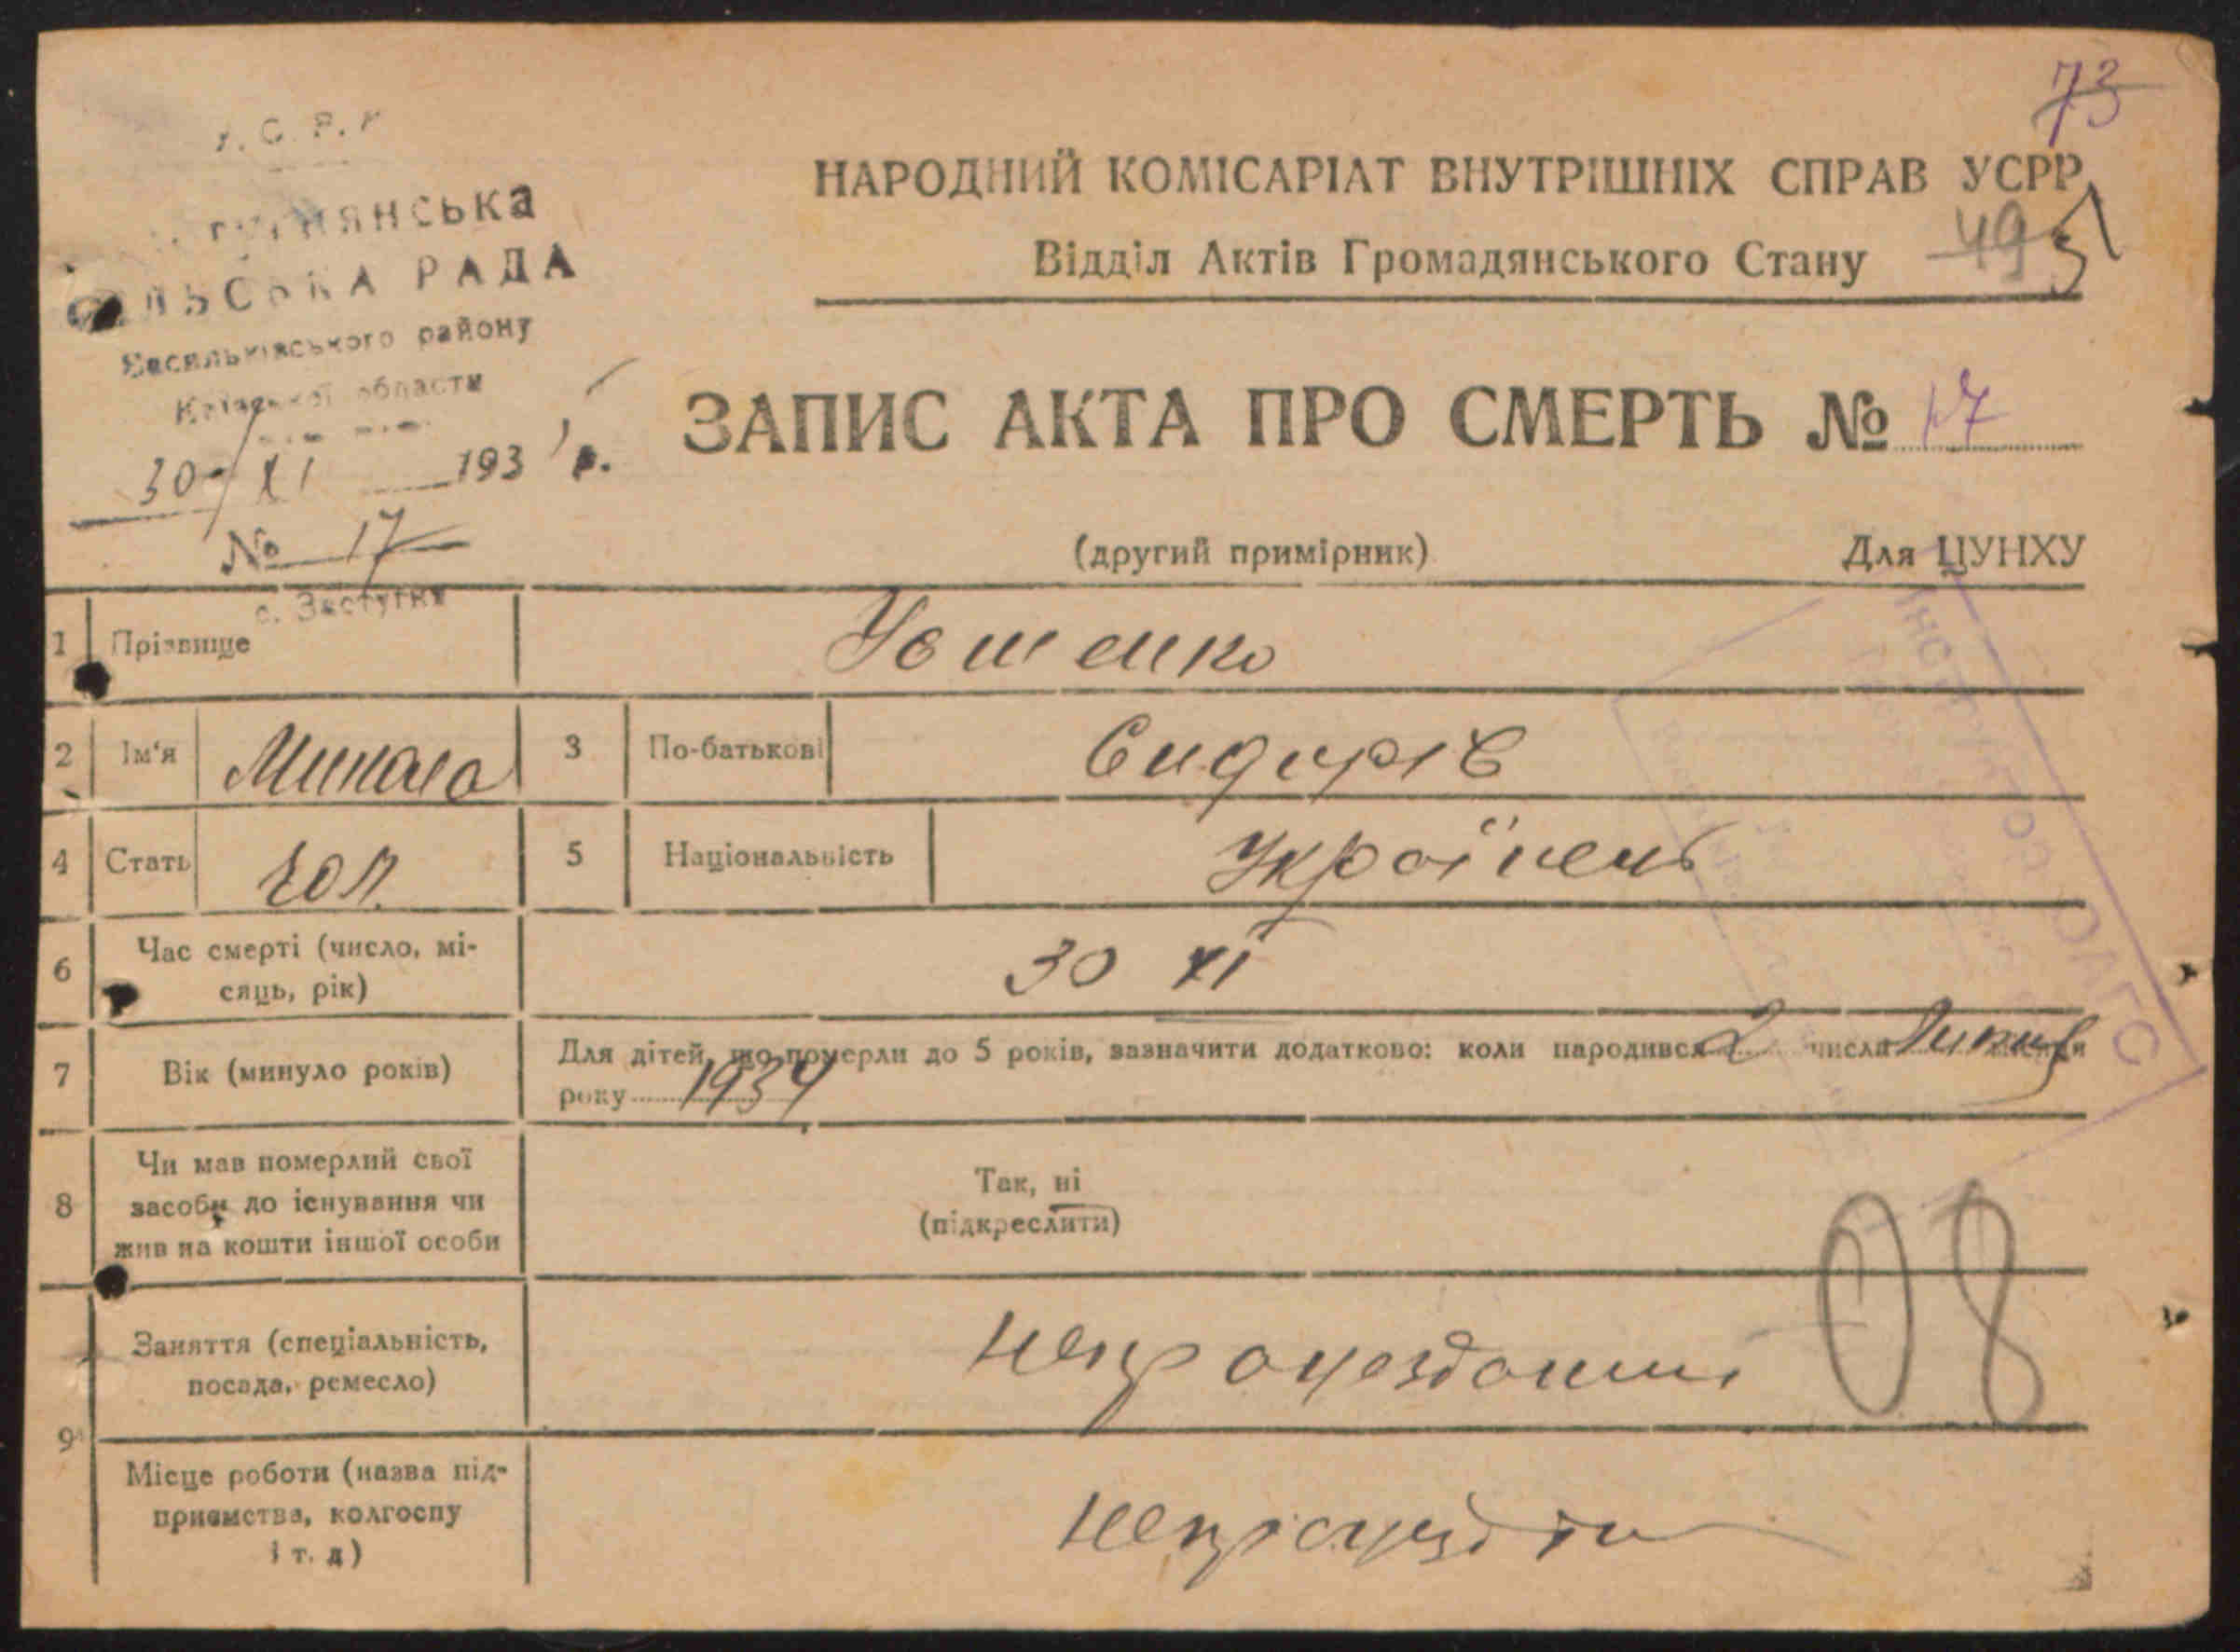 73
НАРОДНИЙ КОМІСАРІАТ ВНУТРІШНІХ СПРАВ УСРР
49 51
Відділ Актів Громадянського Стану
СІЛЬСЬКА РАДА
Васильківського району
Київської области
30/XI 193 р.
№ 17
с. Застугна
ЗАПИС АКТА ПРО СМЕРТЬ № 17
(другий примірник) Для ЦУНХУ
1 Прізвище
2 Ім'я Микола 3 По-батькові Сидорів
4 Стать чол. 5 Національність Українець
6 Час смерті (число, мі-
сяць, рік) 30 XI
7 Вік (минуло років) Для дітей, що померли до 5 років, зазначити додатково: коли народився 2 числа Липця місяця
року 1934
8 Чи мав померлий свої
засоби до існування чи
жив на кошти іншої особи
Так, ні
(підкреслити)
08
9 Заняття (спеціальність,
посада, ремесло)
Місце роботи (назва під-
приємства, колгоспу
і т. д)